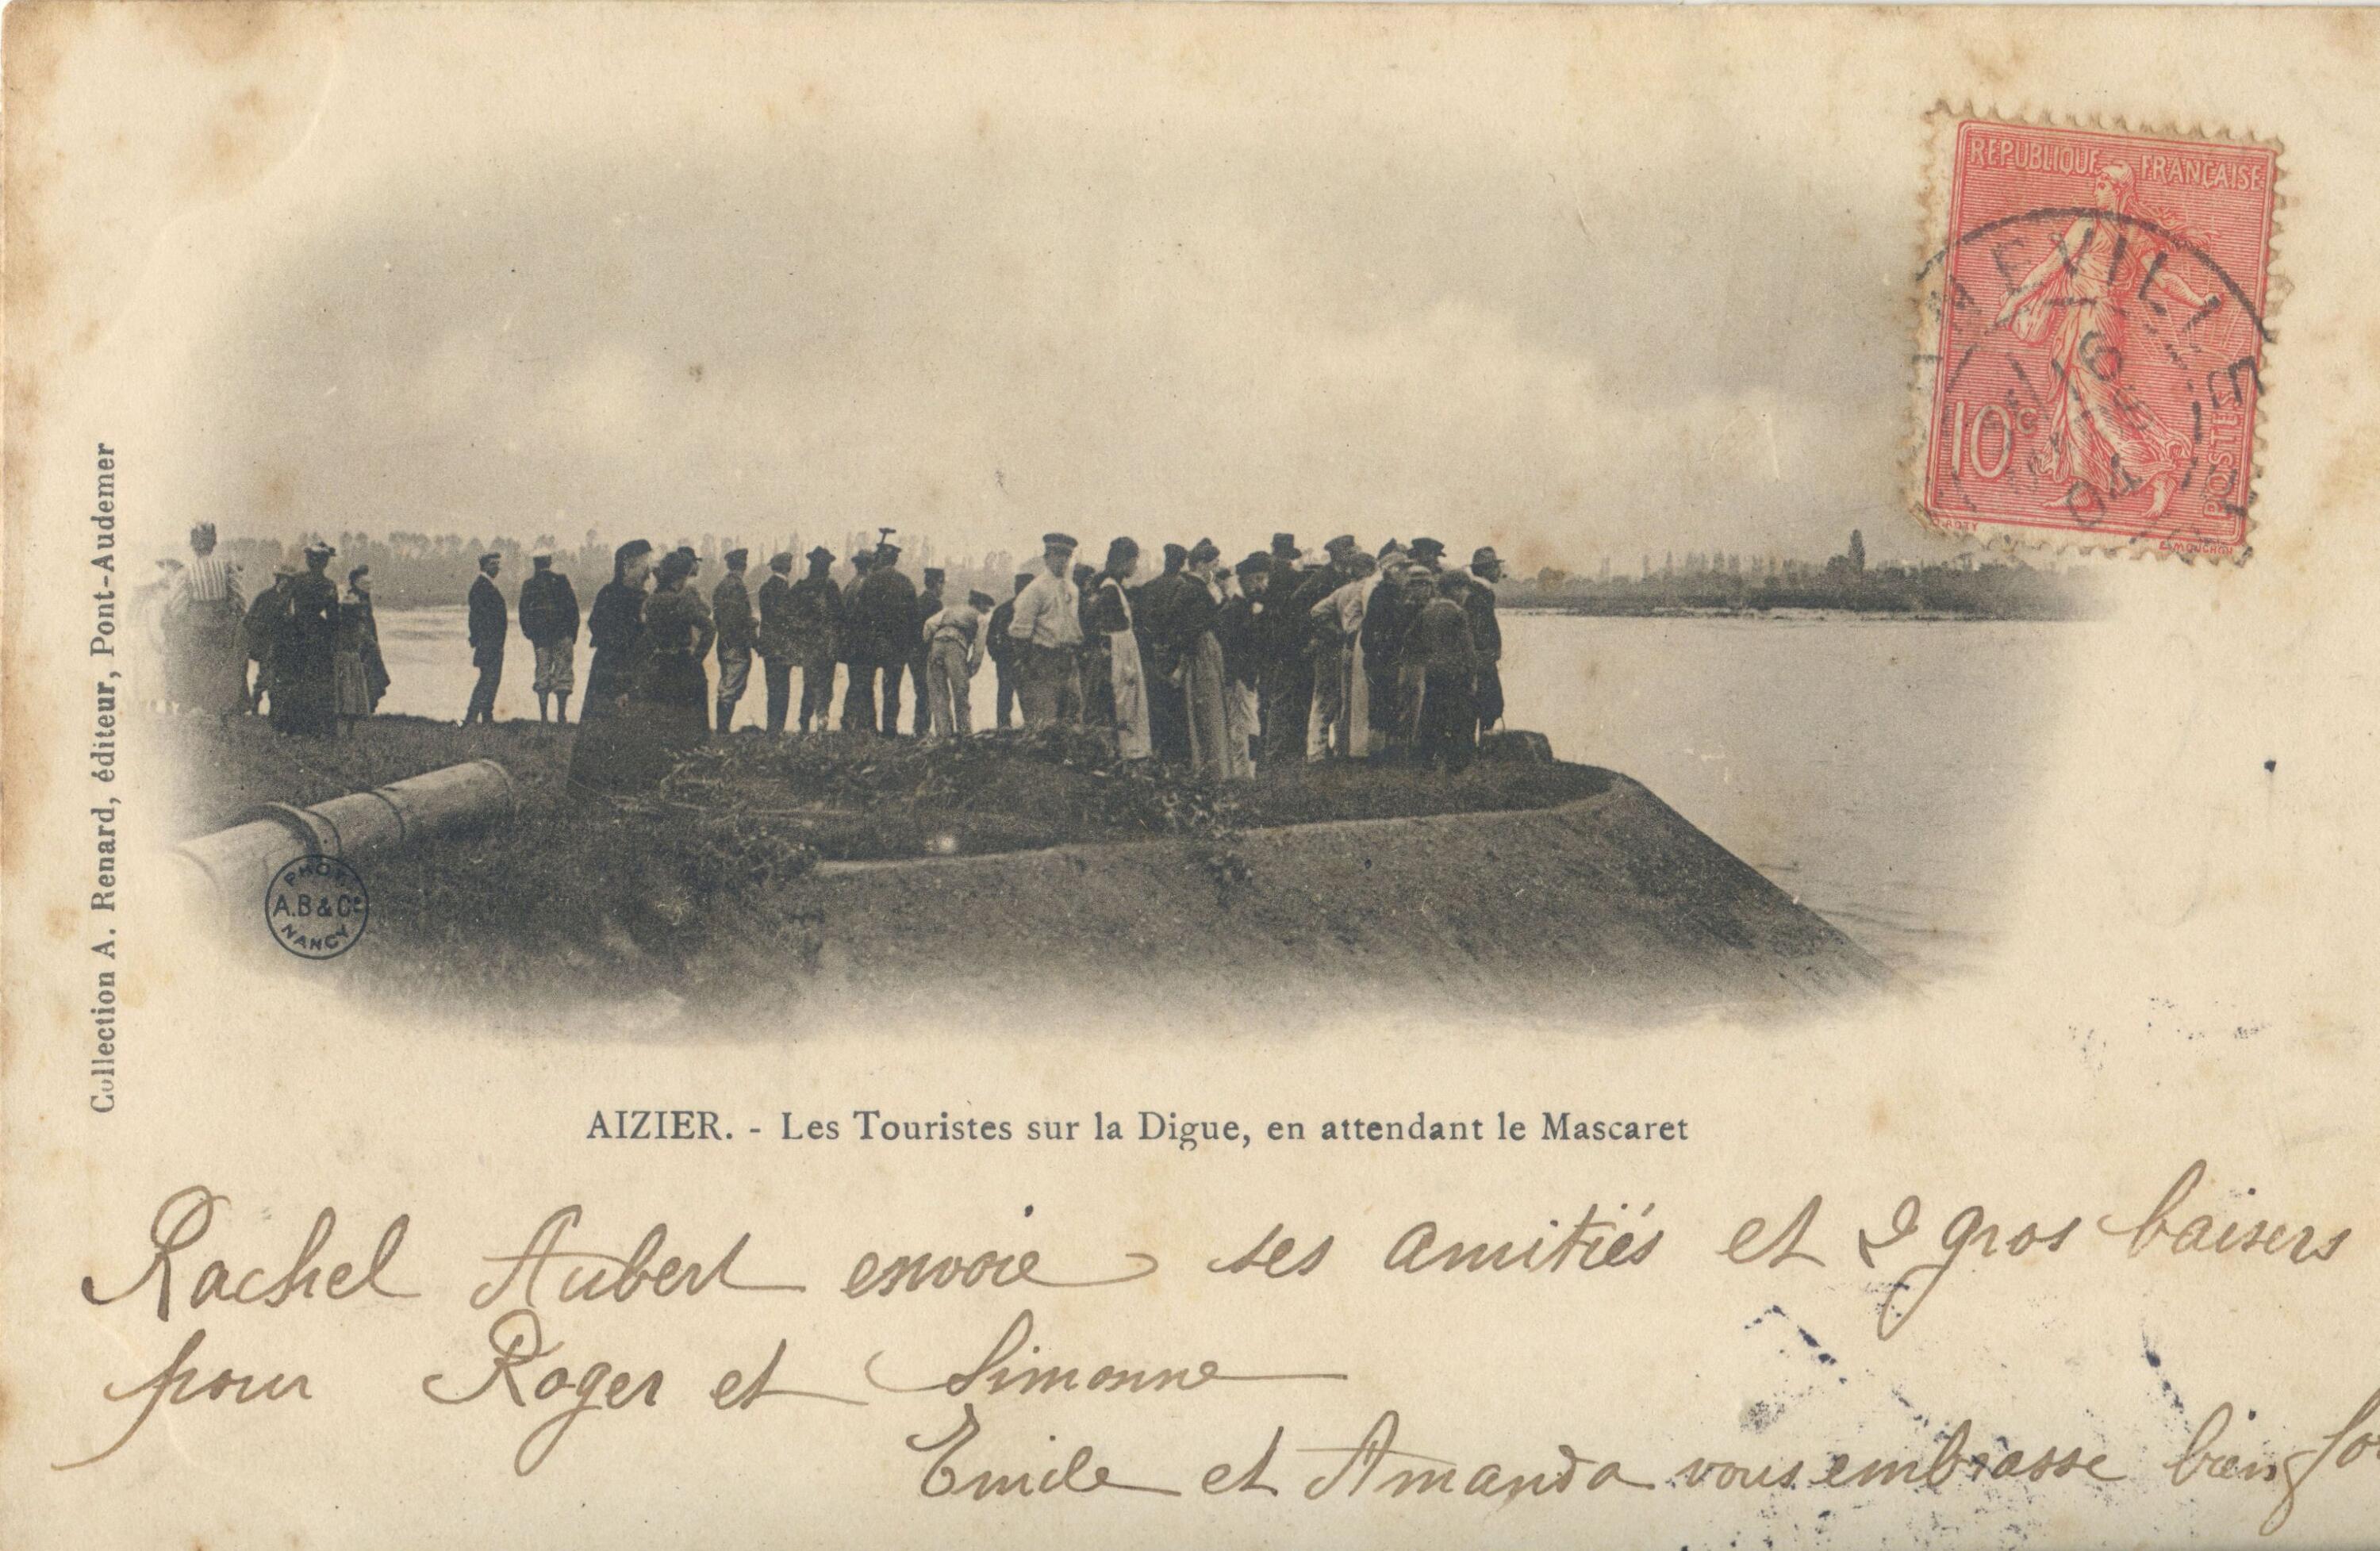 REPUBLIQUE FRANÇAISE
10c
POSTES
O. ROTY
E. MOUCHON
16
04
Collection A. Renard, éditeur, Pont-Audemer
PHOT.
A.B & Cie
NANCY
AIZIER. - Les Touristes sur la Digue, en attendant le Mascaret
Rachel Aubert envoie ses amitiés et 2 gros baisers
pour Roger et Simonne
Emile et Amanda vous embrasse bien